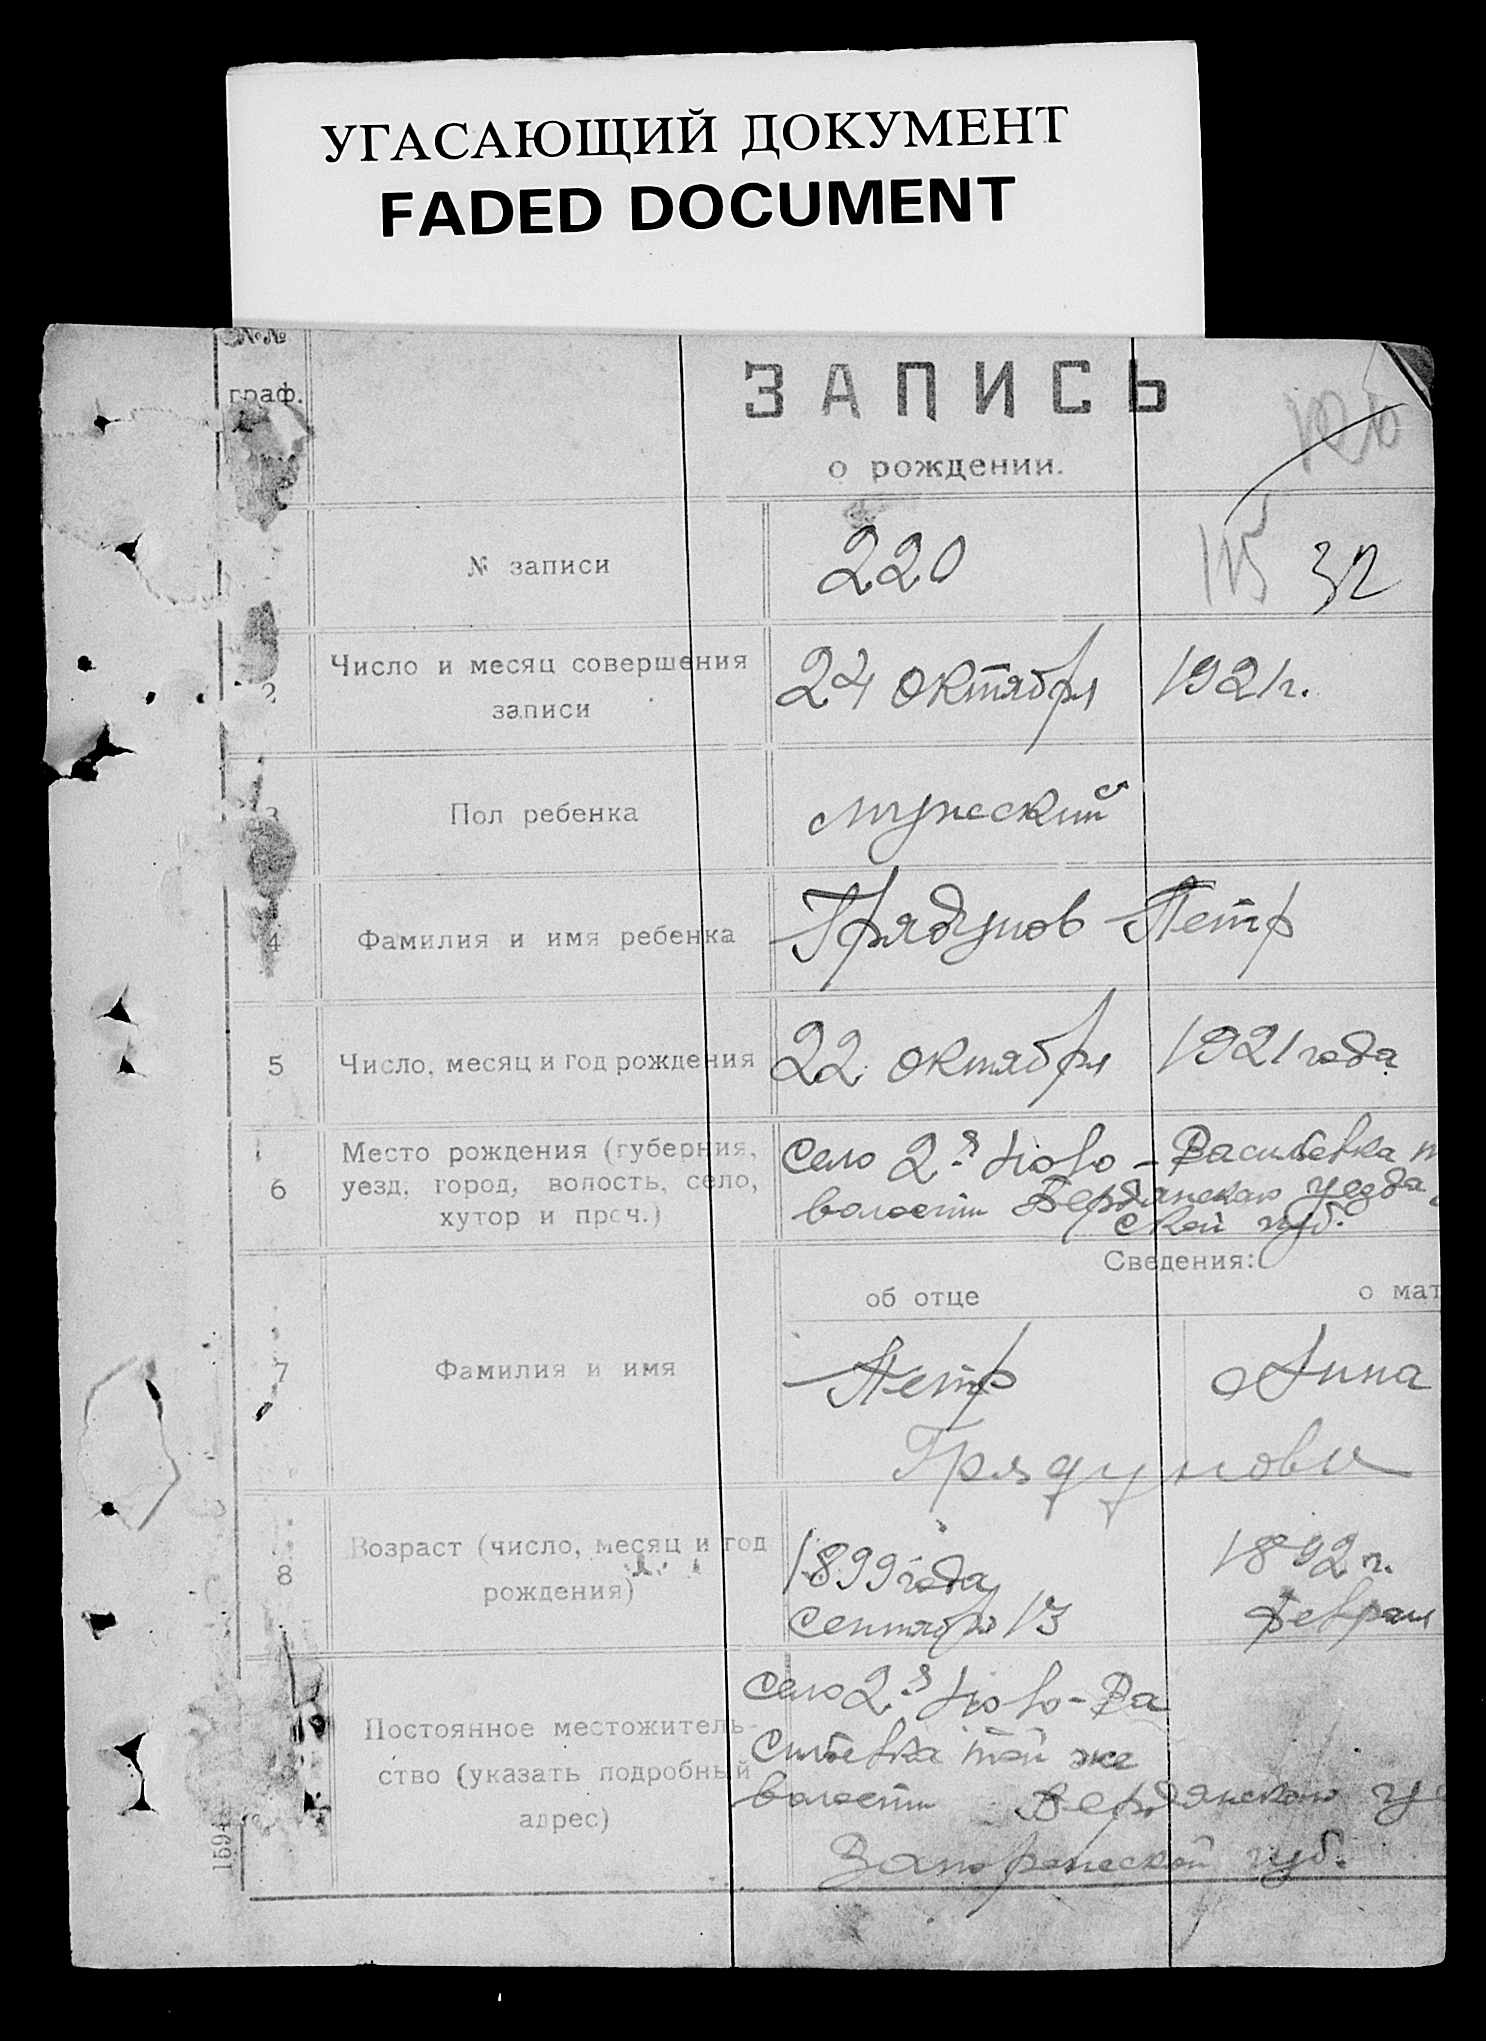 УГАСАЮЩИЙ ДОКУМЕНТ
FADED DOCUMENT
№№
граф.
ЗАПИСЬ
о рождении.
№ записи
220
115 32
2
Число и месяц совершения
записи
24 октября 1921 г.
3
Пол ребенка
мужеский
4
Фамилия и имя ребенка
Грядунов Петр
5
Число, месяц и год рождения
22 октября 1921 года
6
Место рождения (губерния,
уезд, город, волость, село,
хутор и проч.)
село 2-я Ново-Васильевка
волости Бердянского уезда
ской губ.
Сведения:
об отце
о мат
7
Фамилия и имя
Петр
Анна
Грядуновы
8
Возраст (число, месяц и год
рождения)
1899 года
сентября 13
1892 г.
Февраля
Постоянное местожитель-
ство (указать подробный
адрес)
село 2-я Ново-Ва
сильевка той же
волости Бердянского уе
Запорожеской губ.
1594